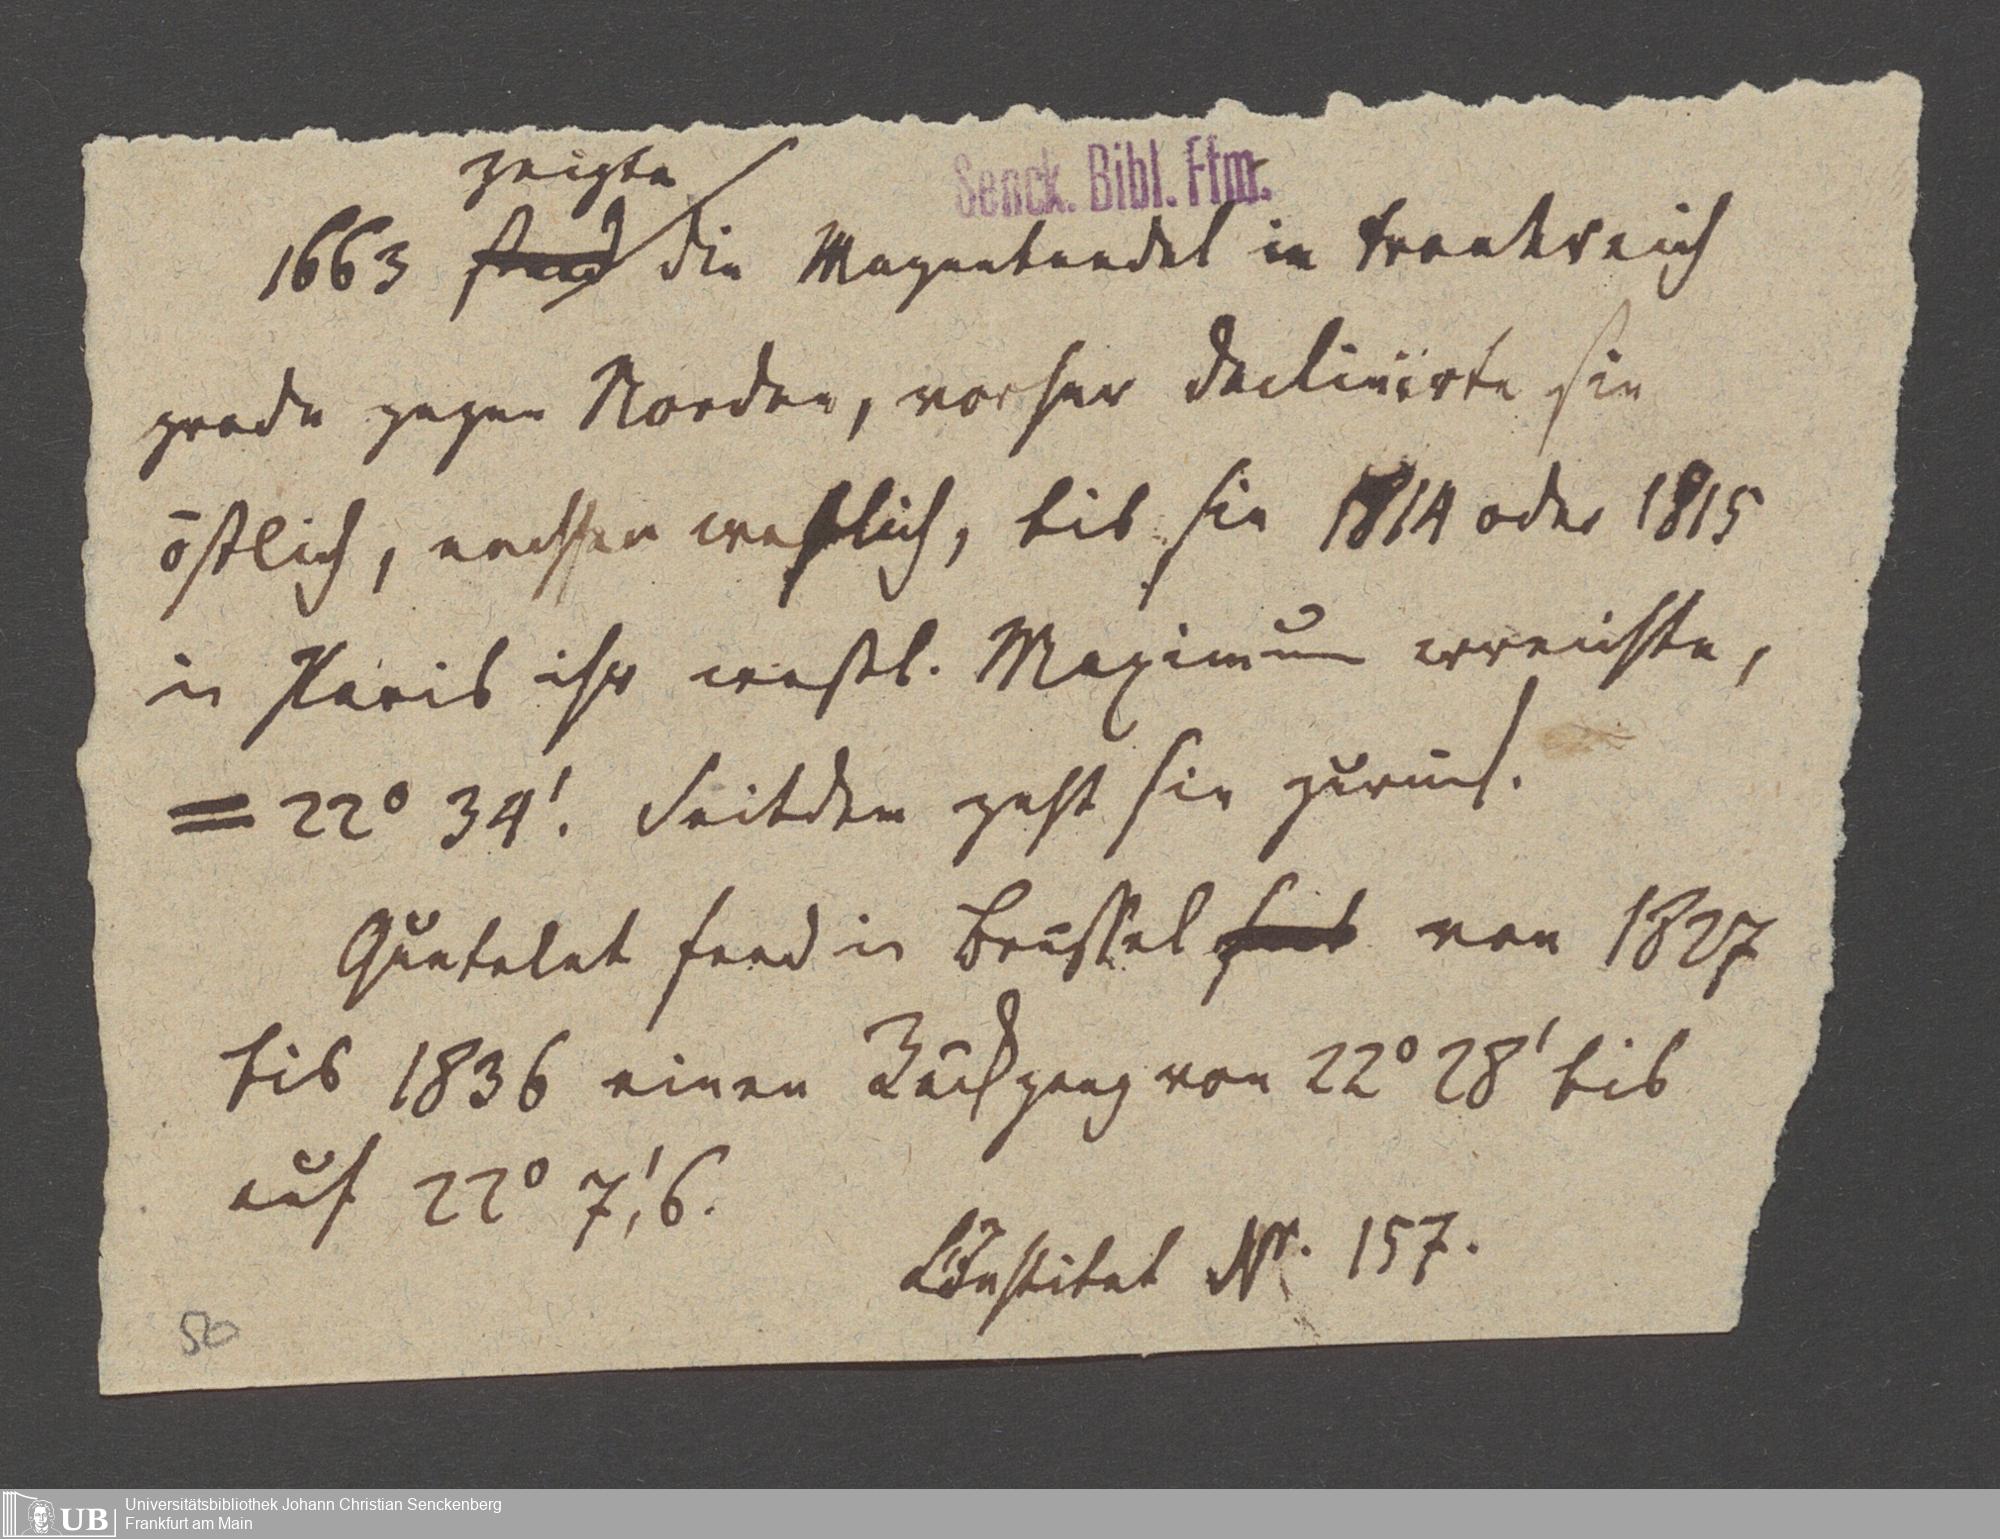 Senck. Bibl. Ffm.
zeigte
1663 stand die Magnetnadel in Frankreich
grade gegen Norden, vorher declinirte sie
östlich, nachher westlich, bis sie 1814 oder 1815
in Paris ihr westl. Maximum erreichte,
= 22° 34'. Seitdem geht sie zurück.
Quetelet fand in Brüssel von 1827
bis 1836 einen Rückgang von 22° 28' bis
auf 22° 7,'6.
L'Institut Nr. 157.
50
UB Universitätsbibliothek Johann Christian Senckenberg
Frankfurt am Main